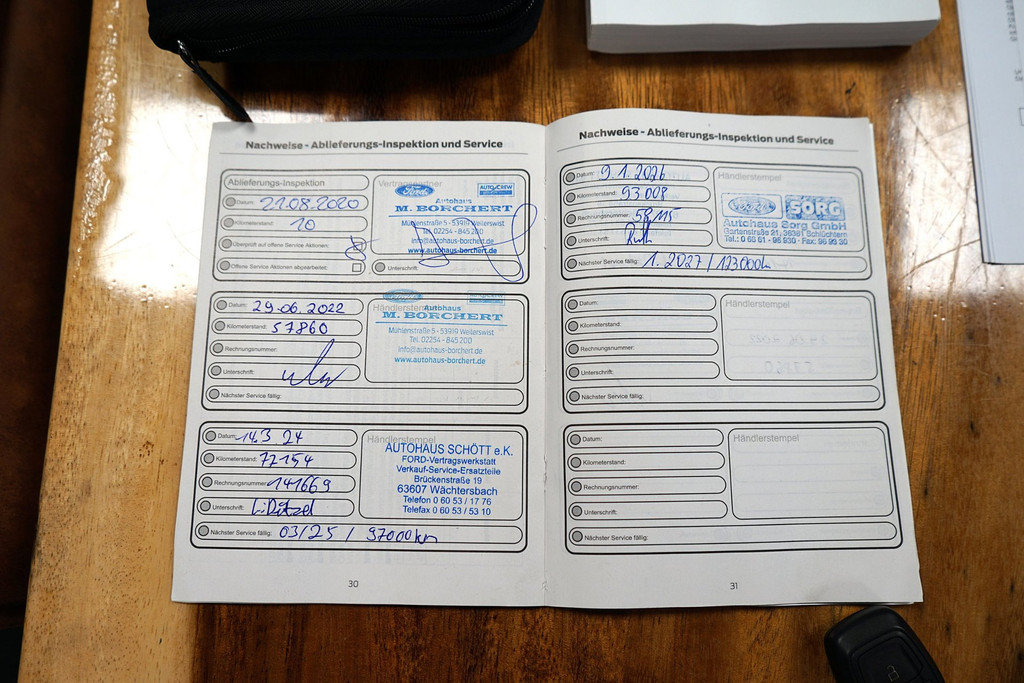 Nachweise - Ablieferungs-Inspektion und Service
Ablieferungs-Inspektion
Datum: 21.08.2020
Kilometerstand: 10
Überprüft auf offene Service Aktionen:
Offene Service Aktionen abgearbeitet:
Vertragspartner
Ford
AUTO CREW
Autohaus
M. BORCHERT
Mühlenstraße 5 - 53919 Weilerswist
Tel. 02254 - 845 200
info@autohaus-borchert.de
www.autohaus-borchert.de
Unterschrift:
Datum: 29.06.2022
Kilometerstand: 57860
Rechnungsnummer:
Unterschrift:
Nächster Service fällig:
Händlerstempel
Autohaus
M. BORCHERT
Mühlenstraße 5 - 53919 Weilerswist
Tel. 02254 - 845 200
info@autohaus-borchert.de
www.autohaus-borchert.de
Datum: 14.3 24
Kilometerstand: 77154
Rechnungsnummer: 141669
Unterschrift:
Nächster Service fällig: 03/25 / 97000km
Händlerstempel
AUTOHAUS SCHÖTT e.K.
FORD-Vertragswerkstatt
Verkauf-Service-Ersatzteile
Brückenstraße 19
63607 Wächtersbach
Telefon 0 60 53 / 17 76
Telefax 0 60 53 / 53 10
30
Nachweise - Ablieferungs-Inspektion und Service
Datum: 9.1.2026
Kilometerstand: 93008
Rechnungsnummer: 58115
Unterschrift:
Nächster Service fällig: 1.2027 / 123000km
Händlerstempel
Ford SORG
Autohaus Sorg GmbH
Gartenstraße 21, 36381 Schlüchtern
Tel.: 0 66 61 - 96 930 · Fax: 96 93 30
Datum:
Kilometerstand:
Rechnungsnummer:
Unterschrift:
Nächster Service fällig:
Händlerstempel
Datum:
Kilometerstand:
Rechnungsnummer:
Unterschrift:
Nächster Service fällig:
Händlerstempel
31